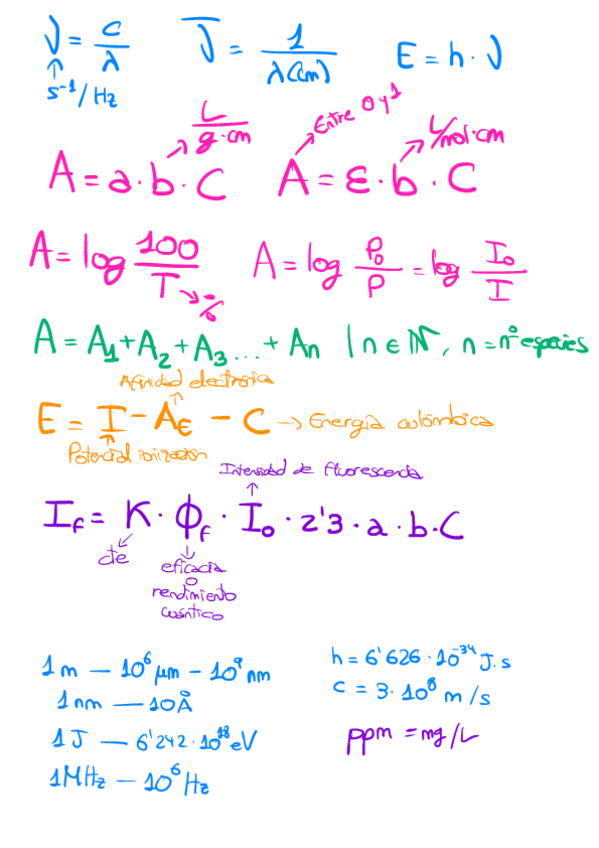 ν = c/λ   ν̅ = 1/λ(cm)   E = h · ν
s⁻¹/Hz
L/g·cm   Entre 0 y 1   L/mol·cm
A = a · b · C   A = ε · b · C
A = log 100/T   A = log P₀/P = log I₀/I
%
A = A₁ + A₂ + A₃ ... + An | n ∈ ℕ, n = nº especies
Afinidad electrónica
E = I - A_E - C → Energía culómbica
Potencial ionización
Intensidad de fluorescencia
I_f = K · Φ_f · I₀ · 2'3 · a · b · C
cte   eficacia
o
rendimiento
cuántico
1 m — 10⁶ μm - 10⁹ nm   h = 6'626 · 10⁻³⁴ J·s
1 nm — 10 Å   c = 3 · 10⁸ m/s
1 J — 6'242 · 10¹⁸ eV   ppm = mg/L
1 MHz — 10⁶ Hz